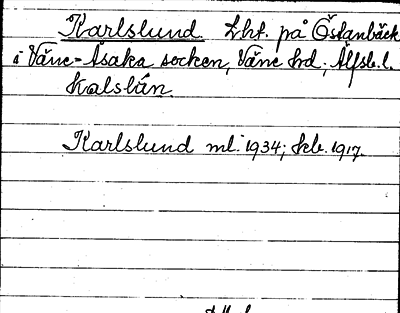 Karlslund. Lht. på Östanbäck
i Väne-Åsaka socken, Väne hd; Älfsb. l.
Kalslún.
Karlslund ml. 1934; kb. 1917.